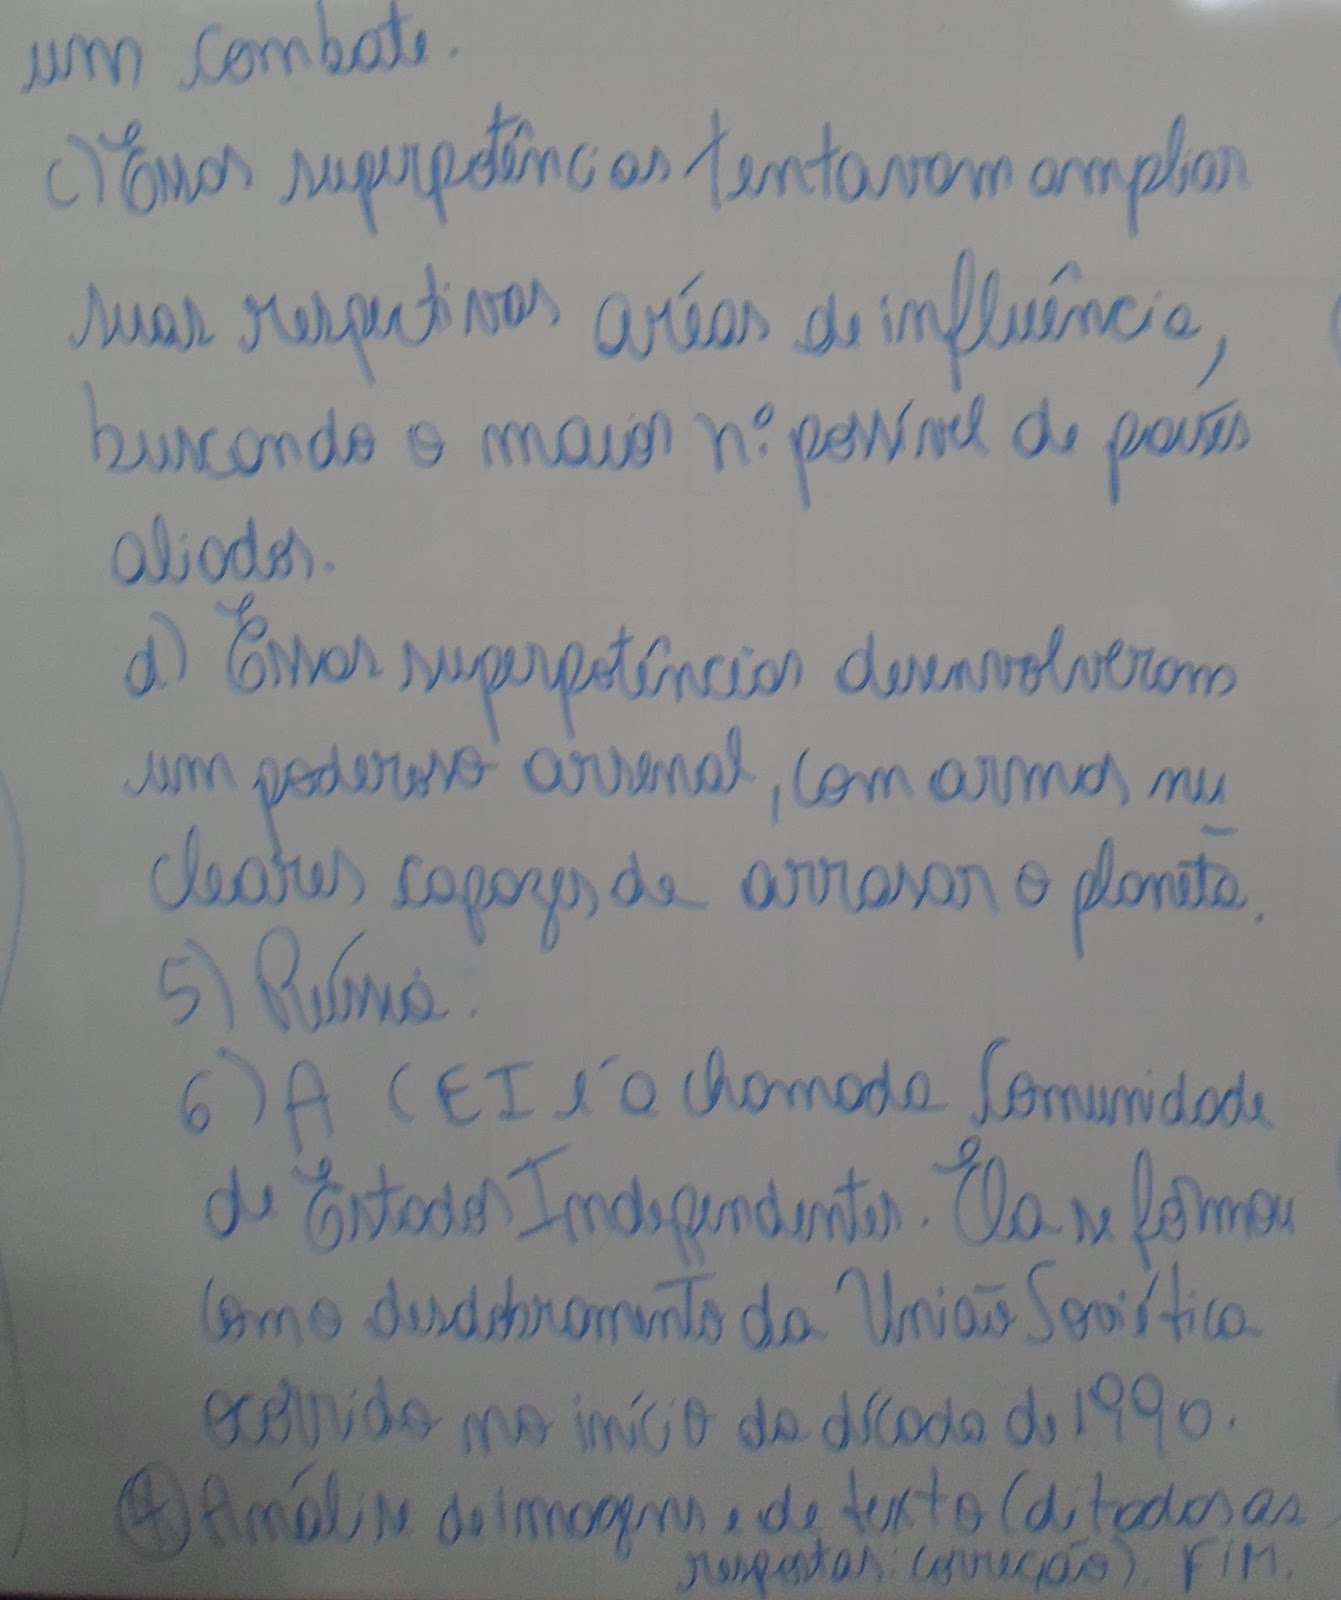 um combate.
c) Essas superpotências tentavam ampliar
suas respectivas aréas de influência,
buscando o maior nº possível de países
aliados.
d) Essas superpotências desenvolveram
um poderoso arsenal, com armas nu
cleares capazes de arrasar o planeta.
5) Rússia.
6) A CEI é a chamada Comunidade
de Estados Independentes. Ela se formou
como desdobramento da União Soviética
ocorrido no início da década de 1990.
7) Análise de imagens e de texto (ditadas as
respostas: correção). FIM.